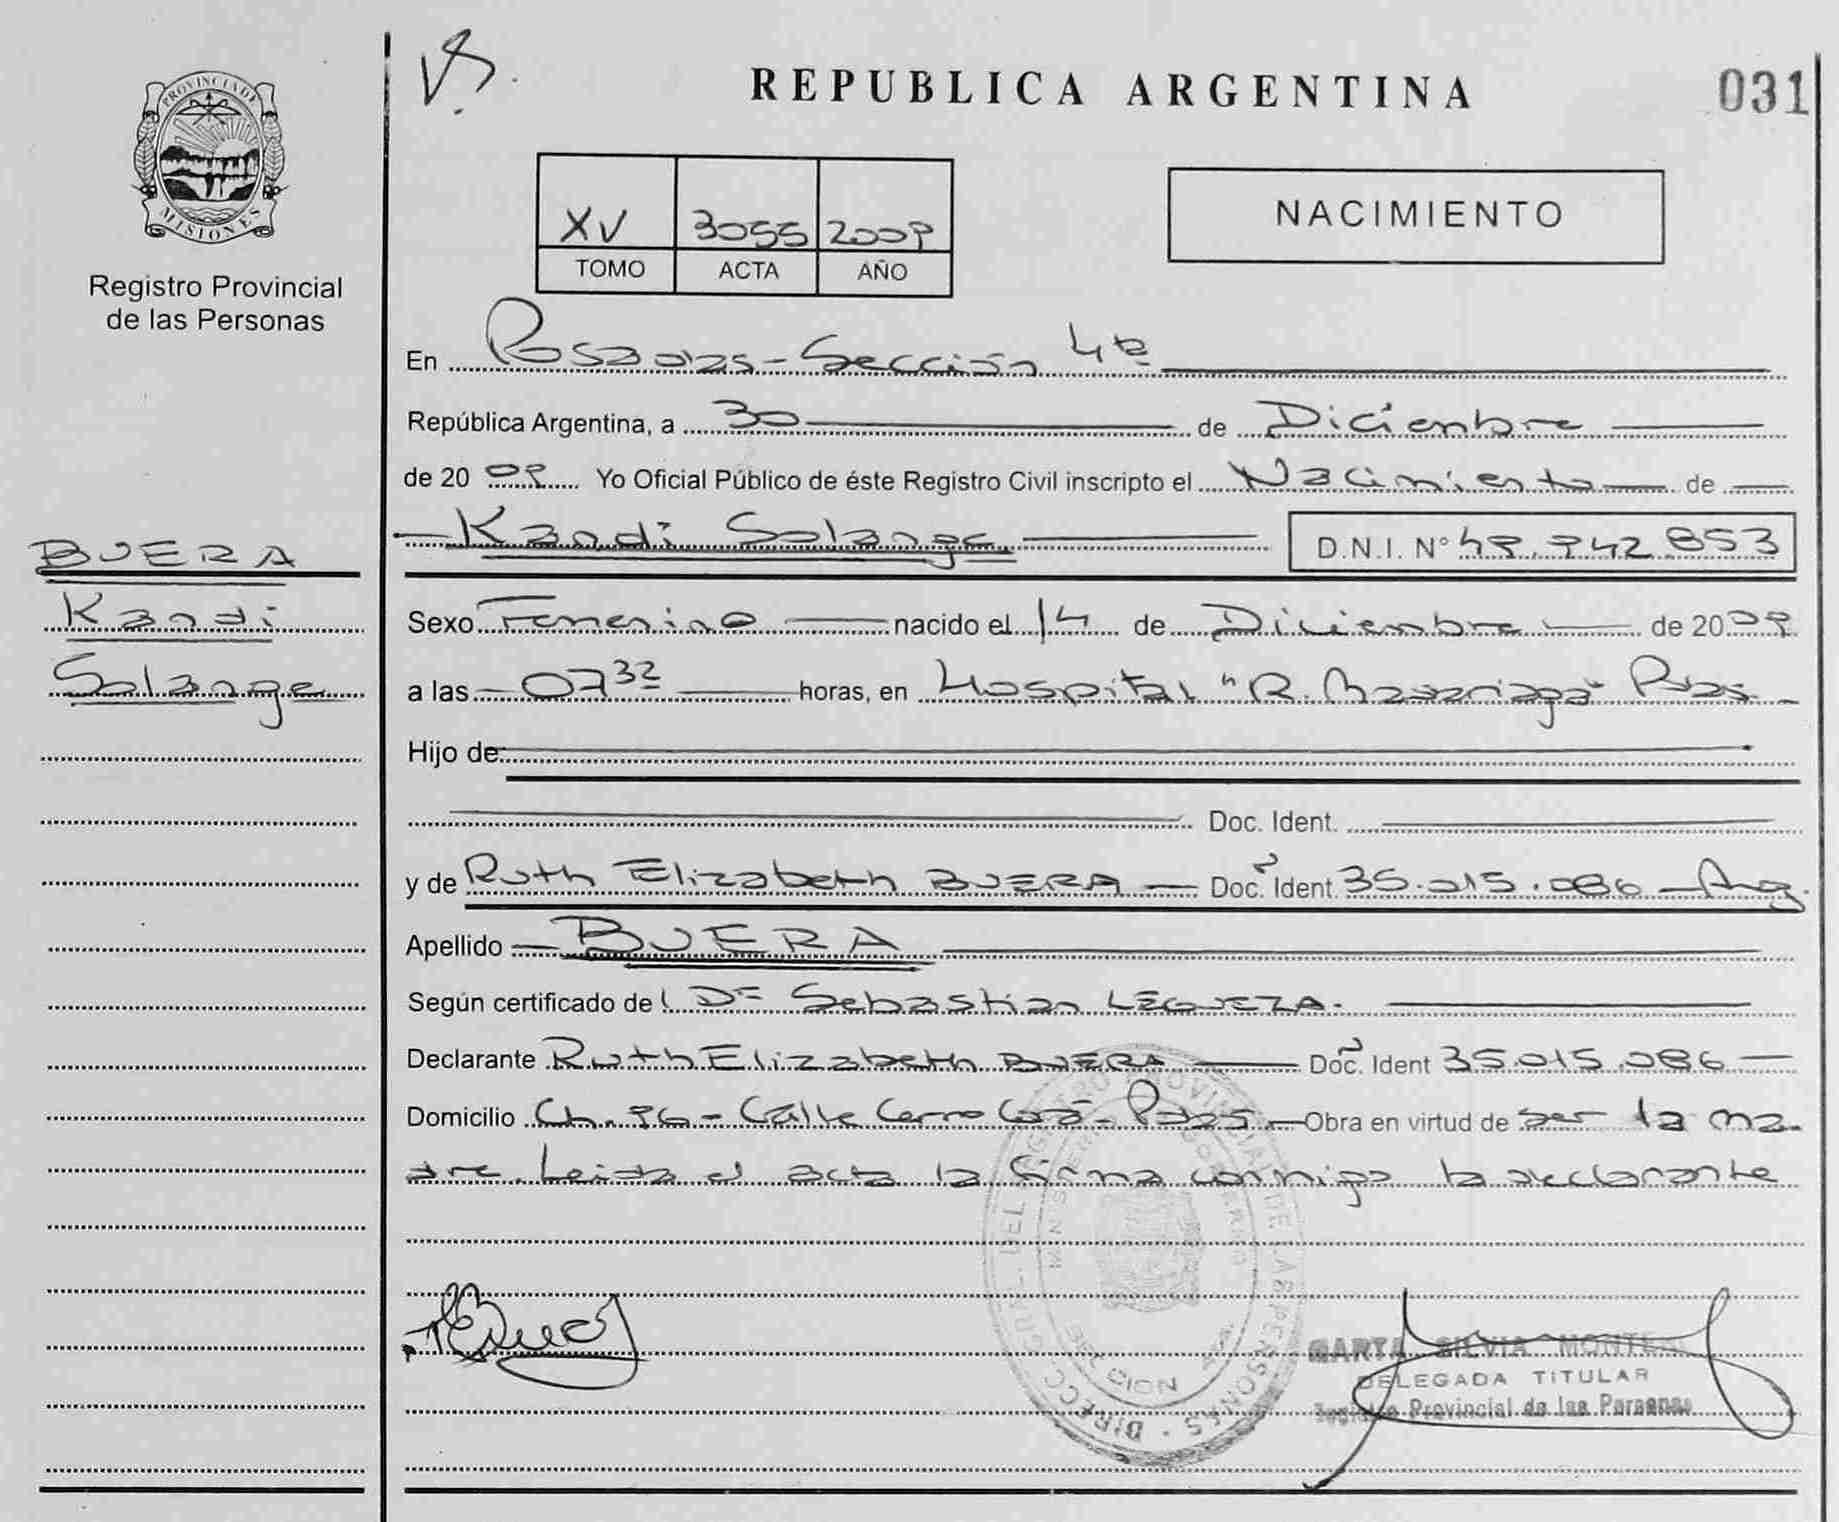 REPUBLICA ARGENTINA
031
PROVINCIA DE
MISIONES
Registro Provincial
de las Personas
XV 3055 2009
TOMO ACTA AÑO
NACIMIENTO
En Posadas - Sección 4ta
República Argentina, a 30 de Diciembre
de 20 09 Yo Oficial Público de éste Registro Civil inscripto el Nacimiento de
Kandi Solange D.N.I. N° 49.942.853
BUERA
Kandi
Solange
Sexo Femenino nacido el 14 de Diciembre de 2009
a las 07 32 horas, en Hospital "R. Madariaga" Pdas.
Hijo de:
Doc. Ident.
y de Ruth Elizabeth BUERA Doc. Ident. 35.015.086 - Arg.
Apellido BUERA
Según certificado de Sebastian LEGUEZA.
Declarante Ruth Elizabeth BUERA Doc. Ident 35.015.086
Domicilio Ch. 96 - Calle Cerro Corá - Pdas. Obra en virtud de ser la ma-
dre. Leida el acta la firma conmigo la declarante
DIRECC. GRAL. DEL REGISTRO PROVINCIAL DE LAS PERSONAS
SILVIA
DELEGADA TITULAR
Registro Provincial de las Personas